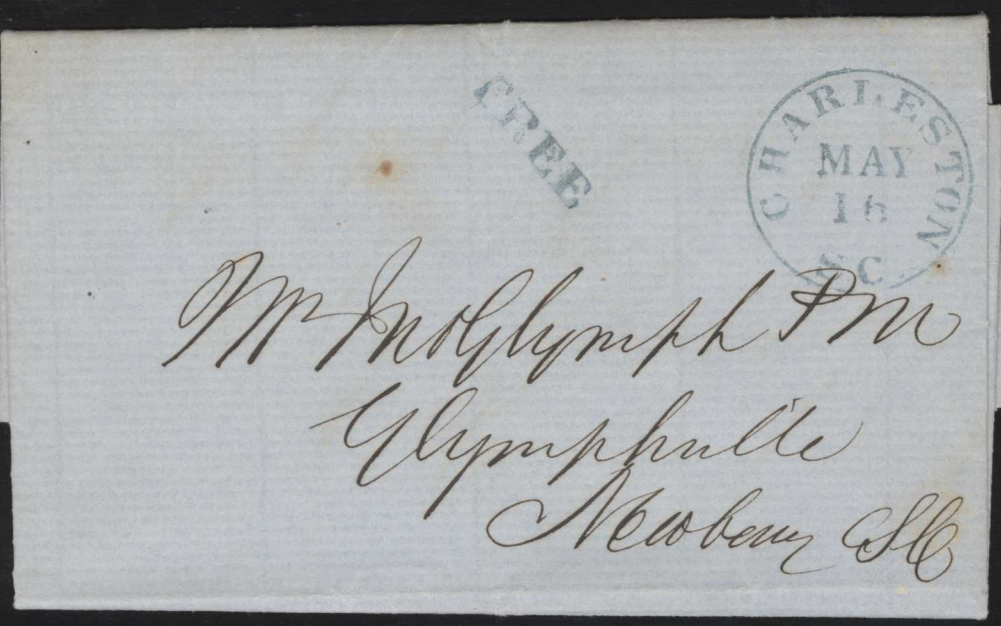 FREE
CHARLESTON
MAY
16
S.C.
Mr Glymph PM
Glymphville
Newberry SC